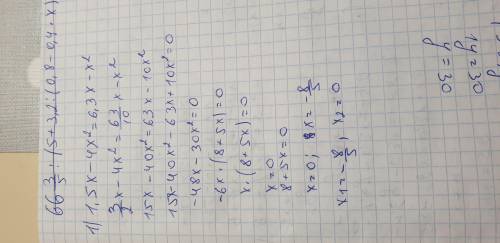 66 3/5 : (5+3,2 : (0,8-0,4·x)
1) 1,5x-4x²=6,3x-x²
3/2 x-4x²=63/10 x-x²
15x-40x²=63x-10x²
15x-40x²-63x+10x²=0
-48x-30x²=0
-6x·(8+5x)=0
x·(8+5x)=0
x=0
8+5x=0
x=0; x=-8/5
x1=-8/5, x2=0
1y=30
y=30